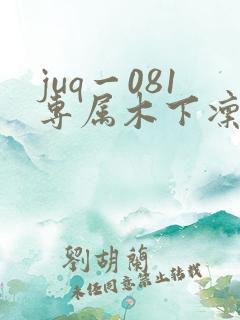 juq一081
专属木下凛
劉胡蘭
未经同意禁止转载